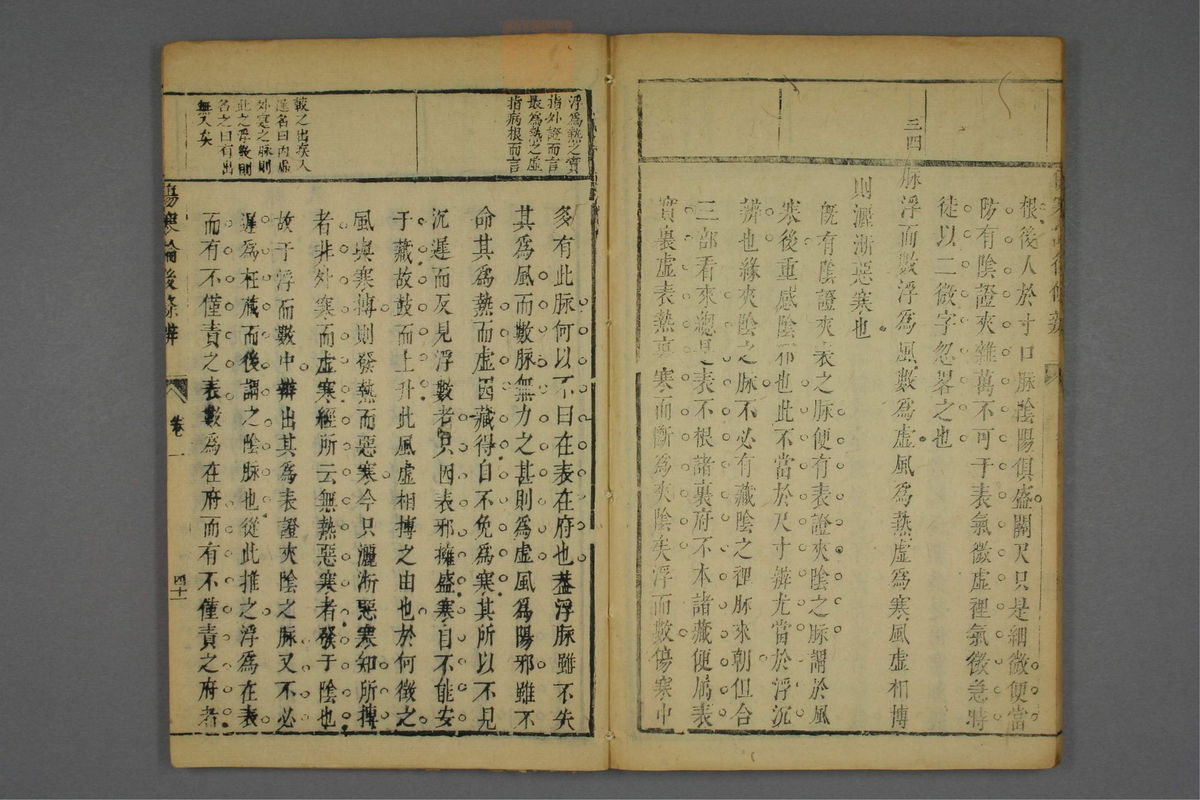 根後人於寸口脉陰陽俱盛關尺只是細微便當
防有陰證夾雜萬不可于表氣微虛裡氣微急時
徒以二微字忽畧之也
三四
脉浮而數浮爲風數爲虛風爲熱虛爲寒風虛相搏
則灑淅惡寒也
旣有陰證夾表之脉便有表證夾陰之脉謂於風
寒後重感陰邪也此不當於尺寸辨尤當於浮沉
辨也緣夾陰之脉不必有藏陰之裡脉來朝但合
三部看來總是表不根諸裏府不本諸藏便屬表
實裏虛表熱裏寒而斷爲夾陰矣浮而數傷寒中
浮爲熱之實
指外證而言
最爲熱之虛
指病根而言
多有此脉何以不曰在表在府也葢浮脉雖不失
其爲風而數脉無力之甚則爲虛風爲陽邪雖不
命其爲熱而虛因藏得自不免爲寒其所以不見
沉遲而反見浮數者只因表邪擁盛寒自不能安
于藏故鼓而上升此風虛相搏之由也於何徵之
風與寒搏則發熱而惡寒今只灑淅惡寒知所搏
者非外寒而虛寒經所云無熱惡寒者發于陰也
故于浮而數中辨出其爲表證夾陰之脉又不必
遲爲在藏而後謂之陰脉也從此推之浮爲在表
而有不僅責之表數爲在府而有不僅責之府者
較之出疾入
遲名曰內虛
外實之脉則
此之浮數則
名之曰有出
無入矣
傷寒論後條辨
卷一
四十一